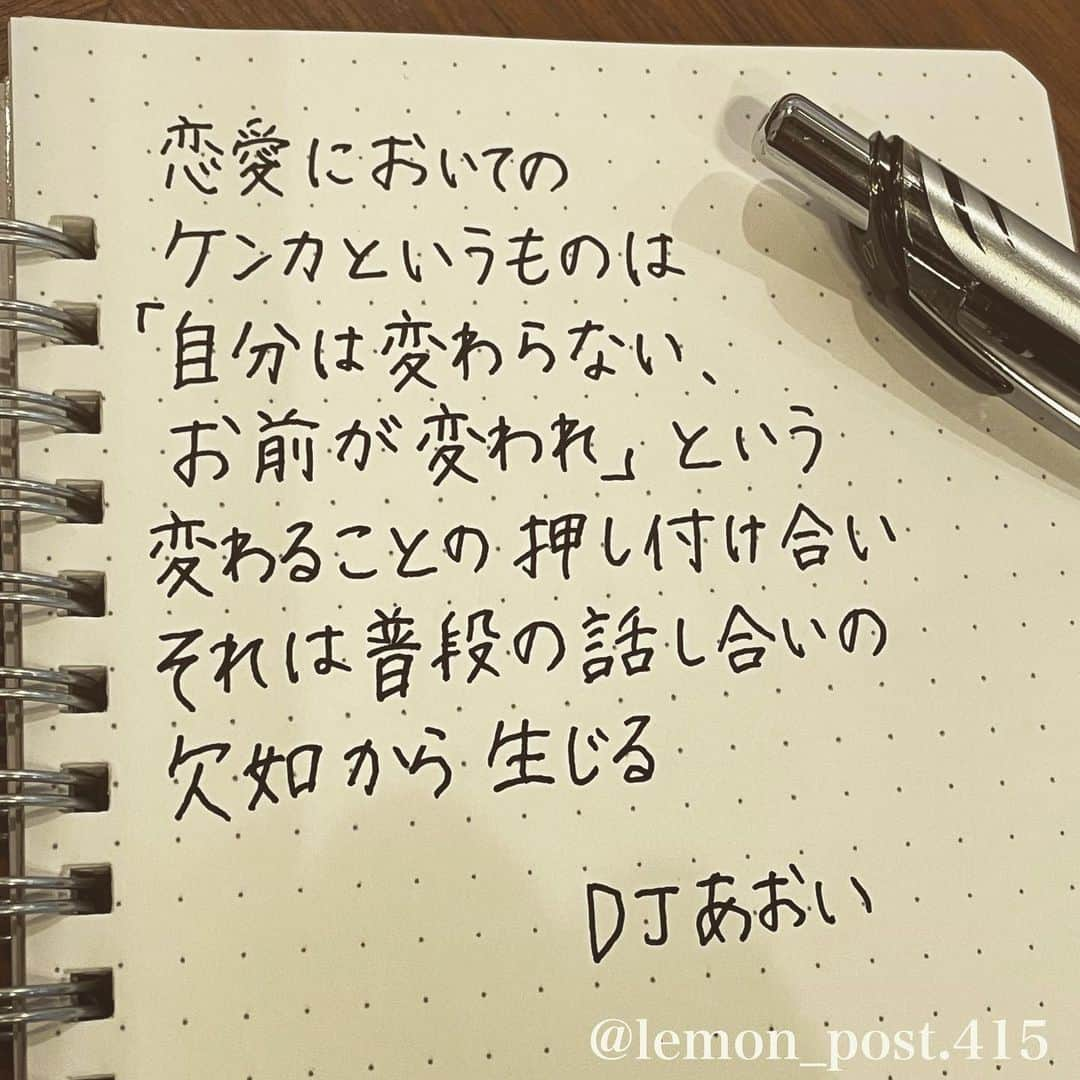 恋愛においての
ケンカというものは
「自分は変わらない、
お前が変われ」という
変わることの押し付け合い
それは普段の話し合いの
欠如から生じる
DJあおい
@lemon_post.415